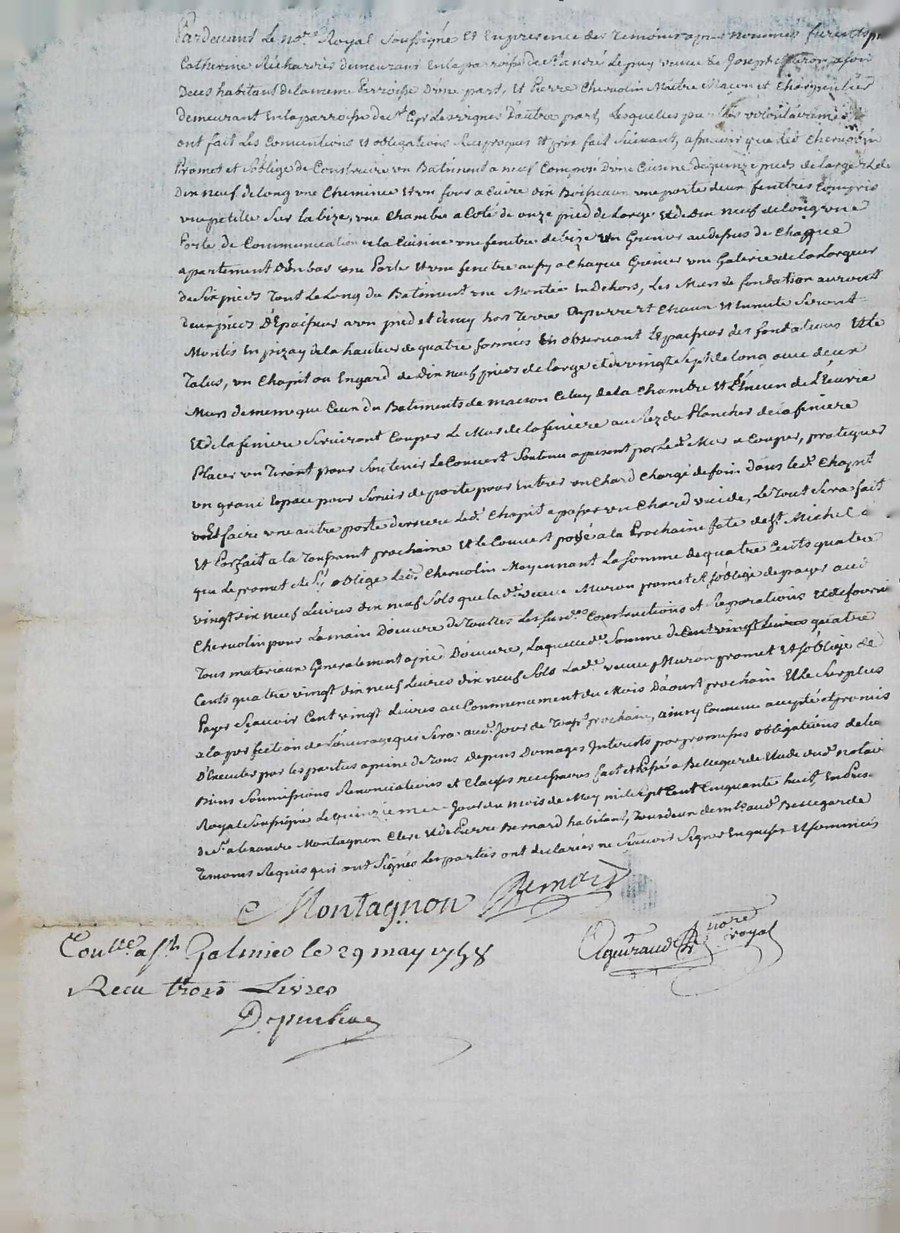 Pardevant Le no.re Royal Soussigné Et En presence des Temoins apres nommés furent
Catherine Richard demeurant En la parroisse de St. andré Le puy veuve de Joseph Muron a son
Deces habitant de la meme Parroisse D'une part, Et Pierre Cheruolin Maitre Macon et Charpentier
demeurant En la parroisse du St. Cyr Les vignes D'autre part, Lesquelles parties volontairement
ont fait Les Conventions et obligations Reciproques Et prix fait Suivant, a scavoir que led. Cheruolin
Promet et s'oblige de Construire un Batiment a neuf Composé D'une Cuisine de quinze pieds de large Et de
Dix neuf de long une Cheminée Et un four a Cuire dix Boisseaux une porte deux fenêtres Compris
une petitte Sur la bize, une Chambre a Coté de onze pied de Large Et de Dix neuf de Long une
Porte de Communication a la Cuisine une fenêtre de bize Un Grenier au dessus de Chaque
apartement D'en bas une Porte Et une fenetre aussy a Chaque Grenier une Galerie de la Largeur
de Six pieds Tout Le Long du Batiment une Montée En Dehors, Les Murs de fondation auront
deux pieds D'Epaisseur a un pied et demy hors Terre En pierre Et Chaux Et Ensuite Seront
Montés En pizay de la hauteur de quatre formées En observant L'Epaisseur des fondations Et Le
Talus, un Chapit ou Engard de Dix neuf pieds de Large et de vingt Sept de long avec deux
Murs de meme que Ceux du Batiments de maison Celuy de la Chambre Et L'Encien de L'Ecurie
Et de la feniere Serviront Couper Le Mur de la feniere au Rez du Plancher de la feniere
Placer un Tirant pour Soutenir Le Couvert Soutenu a present par Led. Mur a Couper, pratiquer
un grand Espace pour Servir de porte pour Entrer un Chard Chargé de foin Dans Led. Chapit
Et faire une autre porte derriere Led. Chapit a passer un Chard vuide, Le Tout Sera fait
Et Parfait a la Toussaint prochaine Et Le Couvert posé a la Prochaine fete de St. Michel a
quoy promet Et S'oblige Led. Cheruolin Moyennant La Somme de quatre Cents quatre
vingt dix neuf Livres dix neuf Sols que lad. veuve Muron promet Et s'oblige de payer aud.
Cheruolin pour La main D'oeuvre de Touttes Les Susd.es Constructions et Reparations Et de fournir
Tous materiaux Generalement a pied D'oeuvre, Laquelle d. Somme de quatre
Cents quatre vingt dix neuf Livres dix neuf Sols Lad. veuve Muron promet Et s'oblige de
Payer Scavoir Cent vingt Livres au Commencement du Mois D'aoust prochain Et Le Surplus
a la perfection de L'ouvrage qui Sera aud. Jour de Tous.ts prochain, ainsy Convenu accepté et promis
D'Executer par les parties a peine de Tous depens Domages Interests par promesses obligations de leurs
Biens Soumissions Renonciations et Clauses necessaires fait et Passé a Bellegarde Etude dud. notaire
Royal Soussigné Le quinzieme Jour du mois de May mil Sept Cent Cinquante huit En Pres-
de Sr. alexandre Montagnon Clerc Et de Pierre Bernard habitant, Tous deux dud. Bellegarde
Temoins Requis qui ont Signés Les parties ont declarées ne Scavoir Signer Enquises Et Sommées
Montagnon Bernard
no.re royal
Con.lle a St. Galmier le 29 may 1758
Recu trois Livres